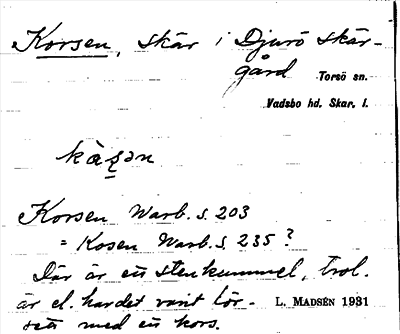 Korsen, skär i Djurö skär-
gård Torsö sn.
Vadsbo hd. Skar. l.
Korsen Warb. s. 203
= Kosen Warb. s. 235?
Där är en stenkummel, trol.
är el. har det varit
L. MADSÉN 1931
med en kors.